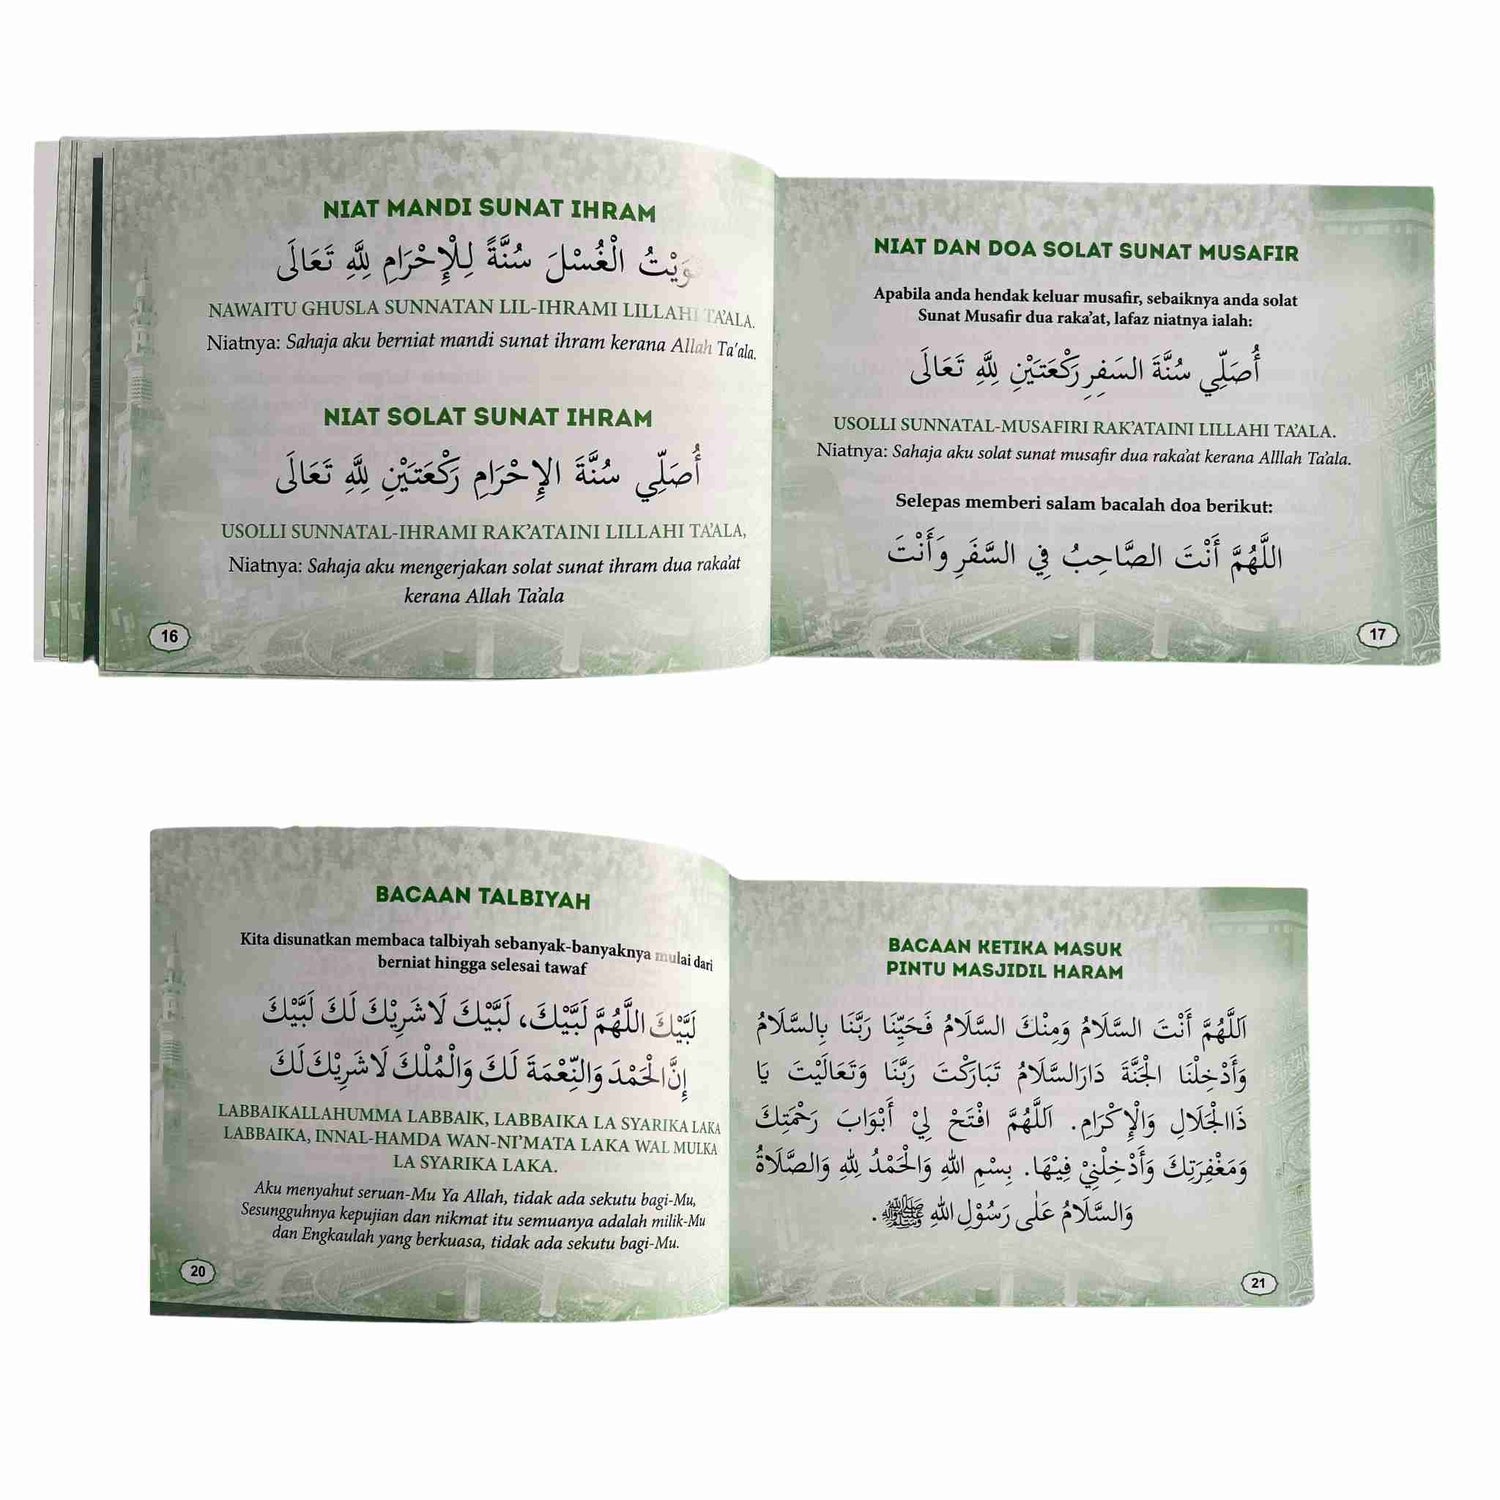 NIAT MANDI SUNAT IHRAM
نَوَيْتُ الْغُسْلَ سُنَّةً لِلْإِحْرَامِ لِلَّهِ تَعَالَى
NAWAITU GHUSLA SUNNATAN LIL-IHRAMI LILLAHI TA'ALA.
Niatnya: Sahaja aku berniat mandi sunat ihram kerana Allah Ta'ala.
NIAT SOLAT SUNAT IHRAM
أُصَلِّي سُنَّةَ الإِحْرَامِ رَكْعَتَيْنِ لِلَّهِ تَعَالَى
USOLLI SUNNATAL-IHRAMI RAK'ATAINI LILLAHI TA'ALA,
Niatnya: Sahaja aku mengerjakan solat sunat ihram dua raka'at
kerana Allah Ta'ala
16
NIAT DAN DOA SOLAT SUNAT MUSAFIR
Apabila anda hendak keluar musafir, sebaiknya anda solat
Sunat Musafir dua raka'at, lafaz niatnya ialah:
أُصَلِّي سُنَّةَ السَفِرِ رَكْعَتَيْنِ لِلَّهِ تَعَالَى
USOLLI SUNNATAL-MUSAFIRI RAK'ATAINI LILLAHI TA'ALA.
Niatnya: Sahaja aku solat sunat musafir dua raka'at kerana Alllah Ta'ala.
Selepas memberi salam bacalah doa berikut:
اللَّهُمَّ أَنْتَ الصَّاحِبُ فِي السَّفَرِ وَأَنْتَ
17
BACAAN TALBIYAH
Kita disunatkan membaca talbiyah sebanyak-banyaknya mulai dari
berniat hingga selesai tawaf
لَبَّيْكَ اللَّهُمَّ لَبَّيْكَ، لَبَّيْكَ لَا شَرِيْكَ لَكَ لَبَّيْكَ
إِنَّ الْحَمْدَ وَالنِّعْمَةَ لَكَ وَالْمُلْكَ لَا شَرِيْكَ لَكَ
LABBAIKALLAHUMMA LABBAIK, LABBAIKA LA SYARIKA LAKA
LABBAIKA, INNAL-HAMDA WAN-NI'MATA LAKA WAL MULKA
LA SYARIKA LAKA.
Aku menyahut seruan-Mu Ya Allah, tidak ada sekutu bagi-Mu,
Sesungguhnya kepujian dan nikmat itu semuanya adalah milik-Mu
dan Engkaulah yang berkuasa, tidak ada sekutu bagi-Mu.
20
BACAAN KETIKA MASUK
PINTU MASJIDIL HARAM
اَللَّهُمَّ أَنْتَ السَّلَامُ وَمِنْكَ السَّلَامُ فَحَيِّنَا رَبَّنَا بِالسَّلَامُ
وَأَدْخِلْنَا الْجَنَّةَ دَارَالسَّلَامُ تَبَارَكْتَ رَبَّنَا وَتَعَالَيْتَ يَا
ذَاالْجَلَالِ وَالْإِكْرَامِ. اَللَّهُمَّ افْتَحْ لِيْ أَبْوَابَ رَحْمَتِكَ
وَمَغْفِرَتِكَ وَأَدْخِلْنِيْ فِيْهَا. بِسْمِ اللهِ وَالْحَمْدُ لِلهِ وَالصَّلَاةُ
وَالسَّلَامُ عَلٰى رَسُوْلِ اللهِ ﷺ.
21